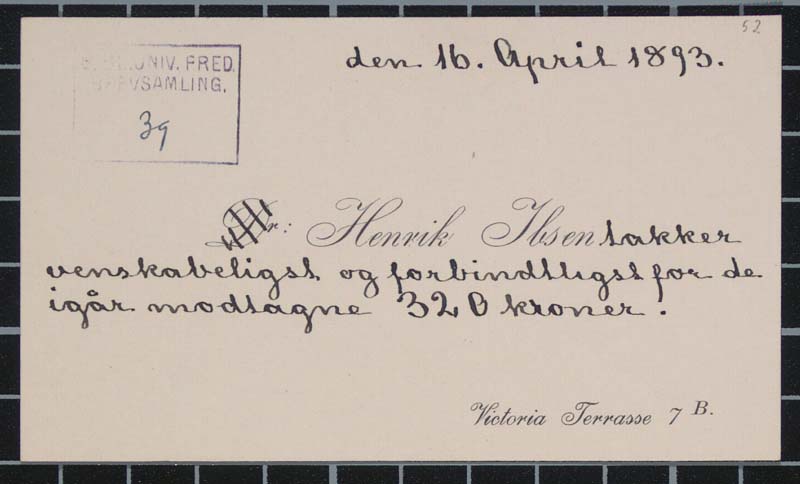 52
den 16. April 1893.
UNIV. FRED.
BREVSAMLING.
39
Dr: Henrik Ibsen takker
venskabeligst og forbindtligst for de
igår modtagne 320 kroner!
Victoria Terrasse 7 B.